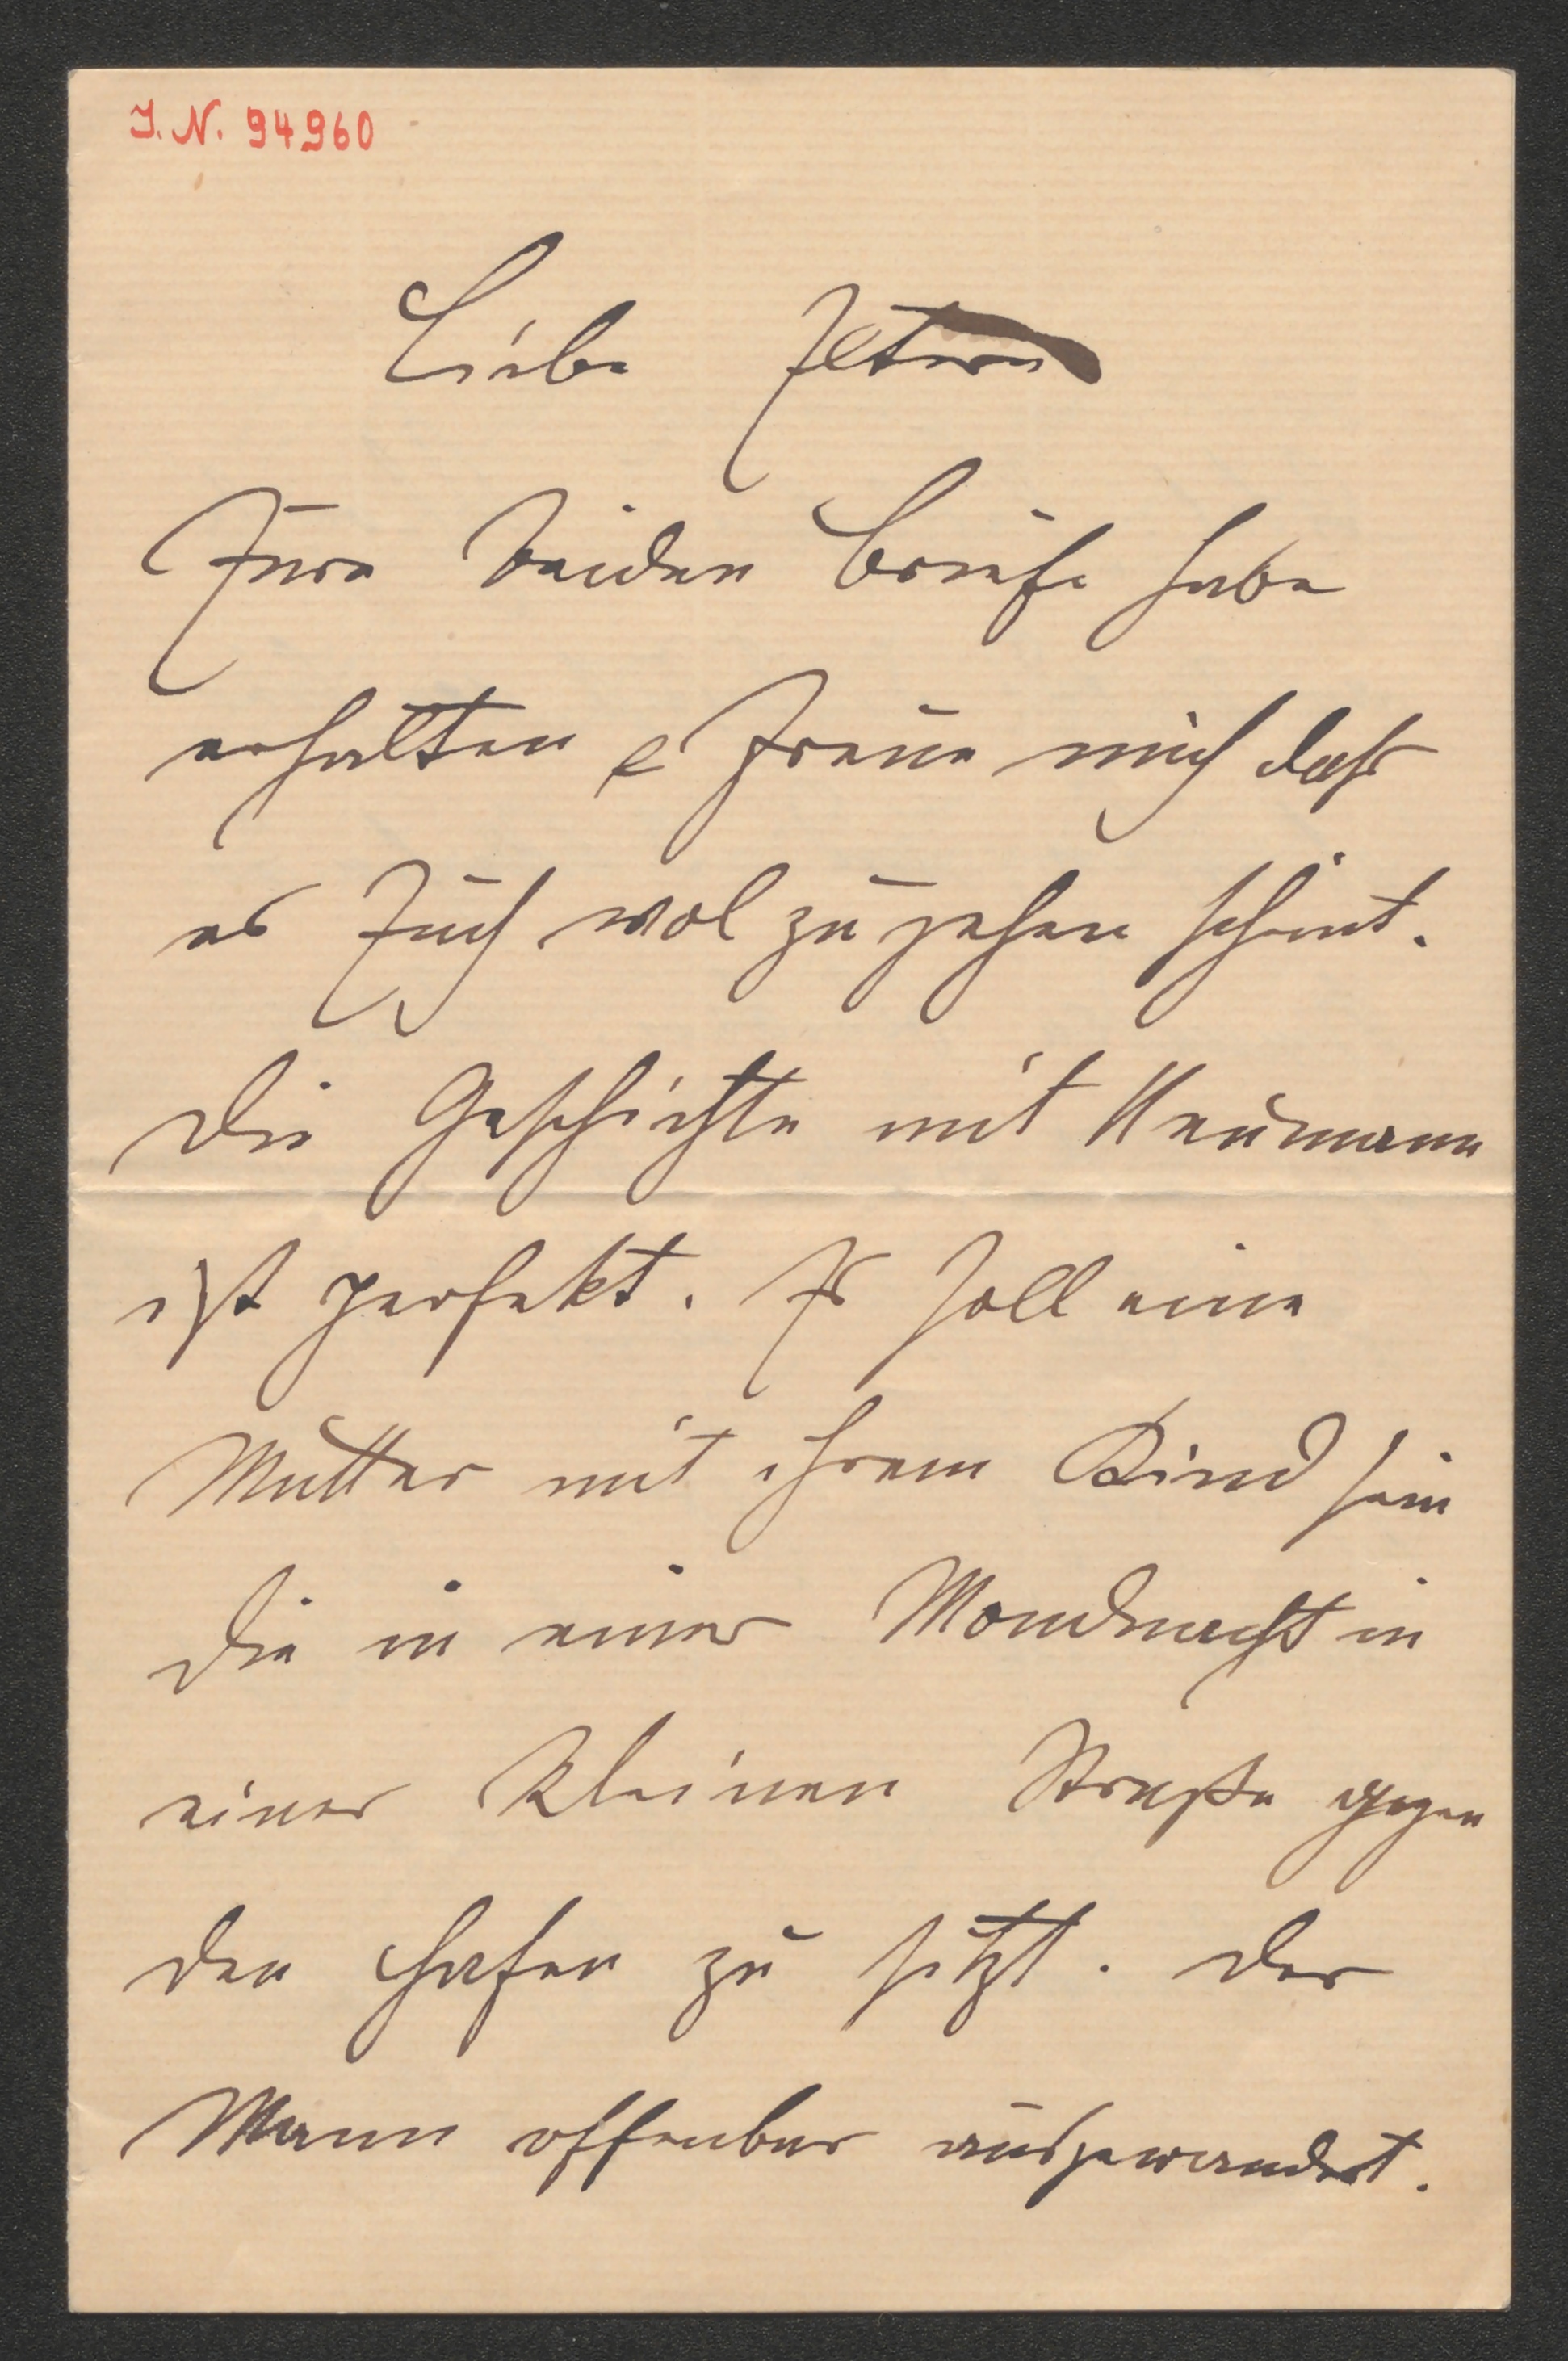 J. N. 94960
Liebe Eltern
Eure beiden Briefe habe
erhalten & freue mich daß
es Euch wol zu gehen scheint.
Die Geschichte mit Neumann
ist perfekt. Es soll eine
Mutter mit ihrem Kind sein
die in einer Mondnacht in
einer kleinen Straße gegen
den Hafen zu sitzt. Der
Mann offenbar ausgewandert.